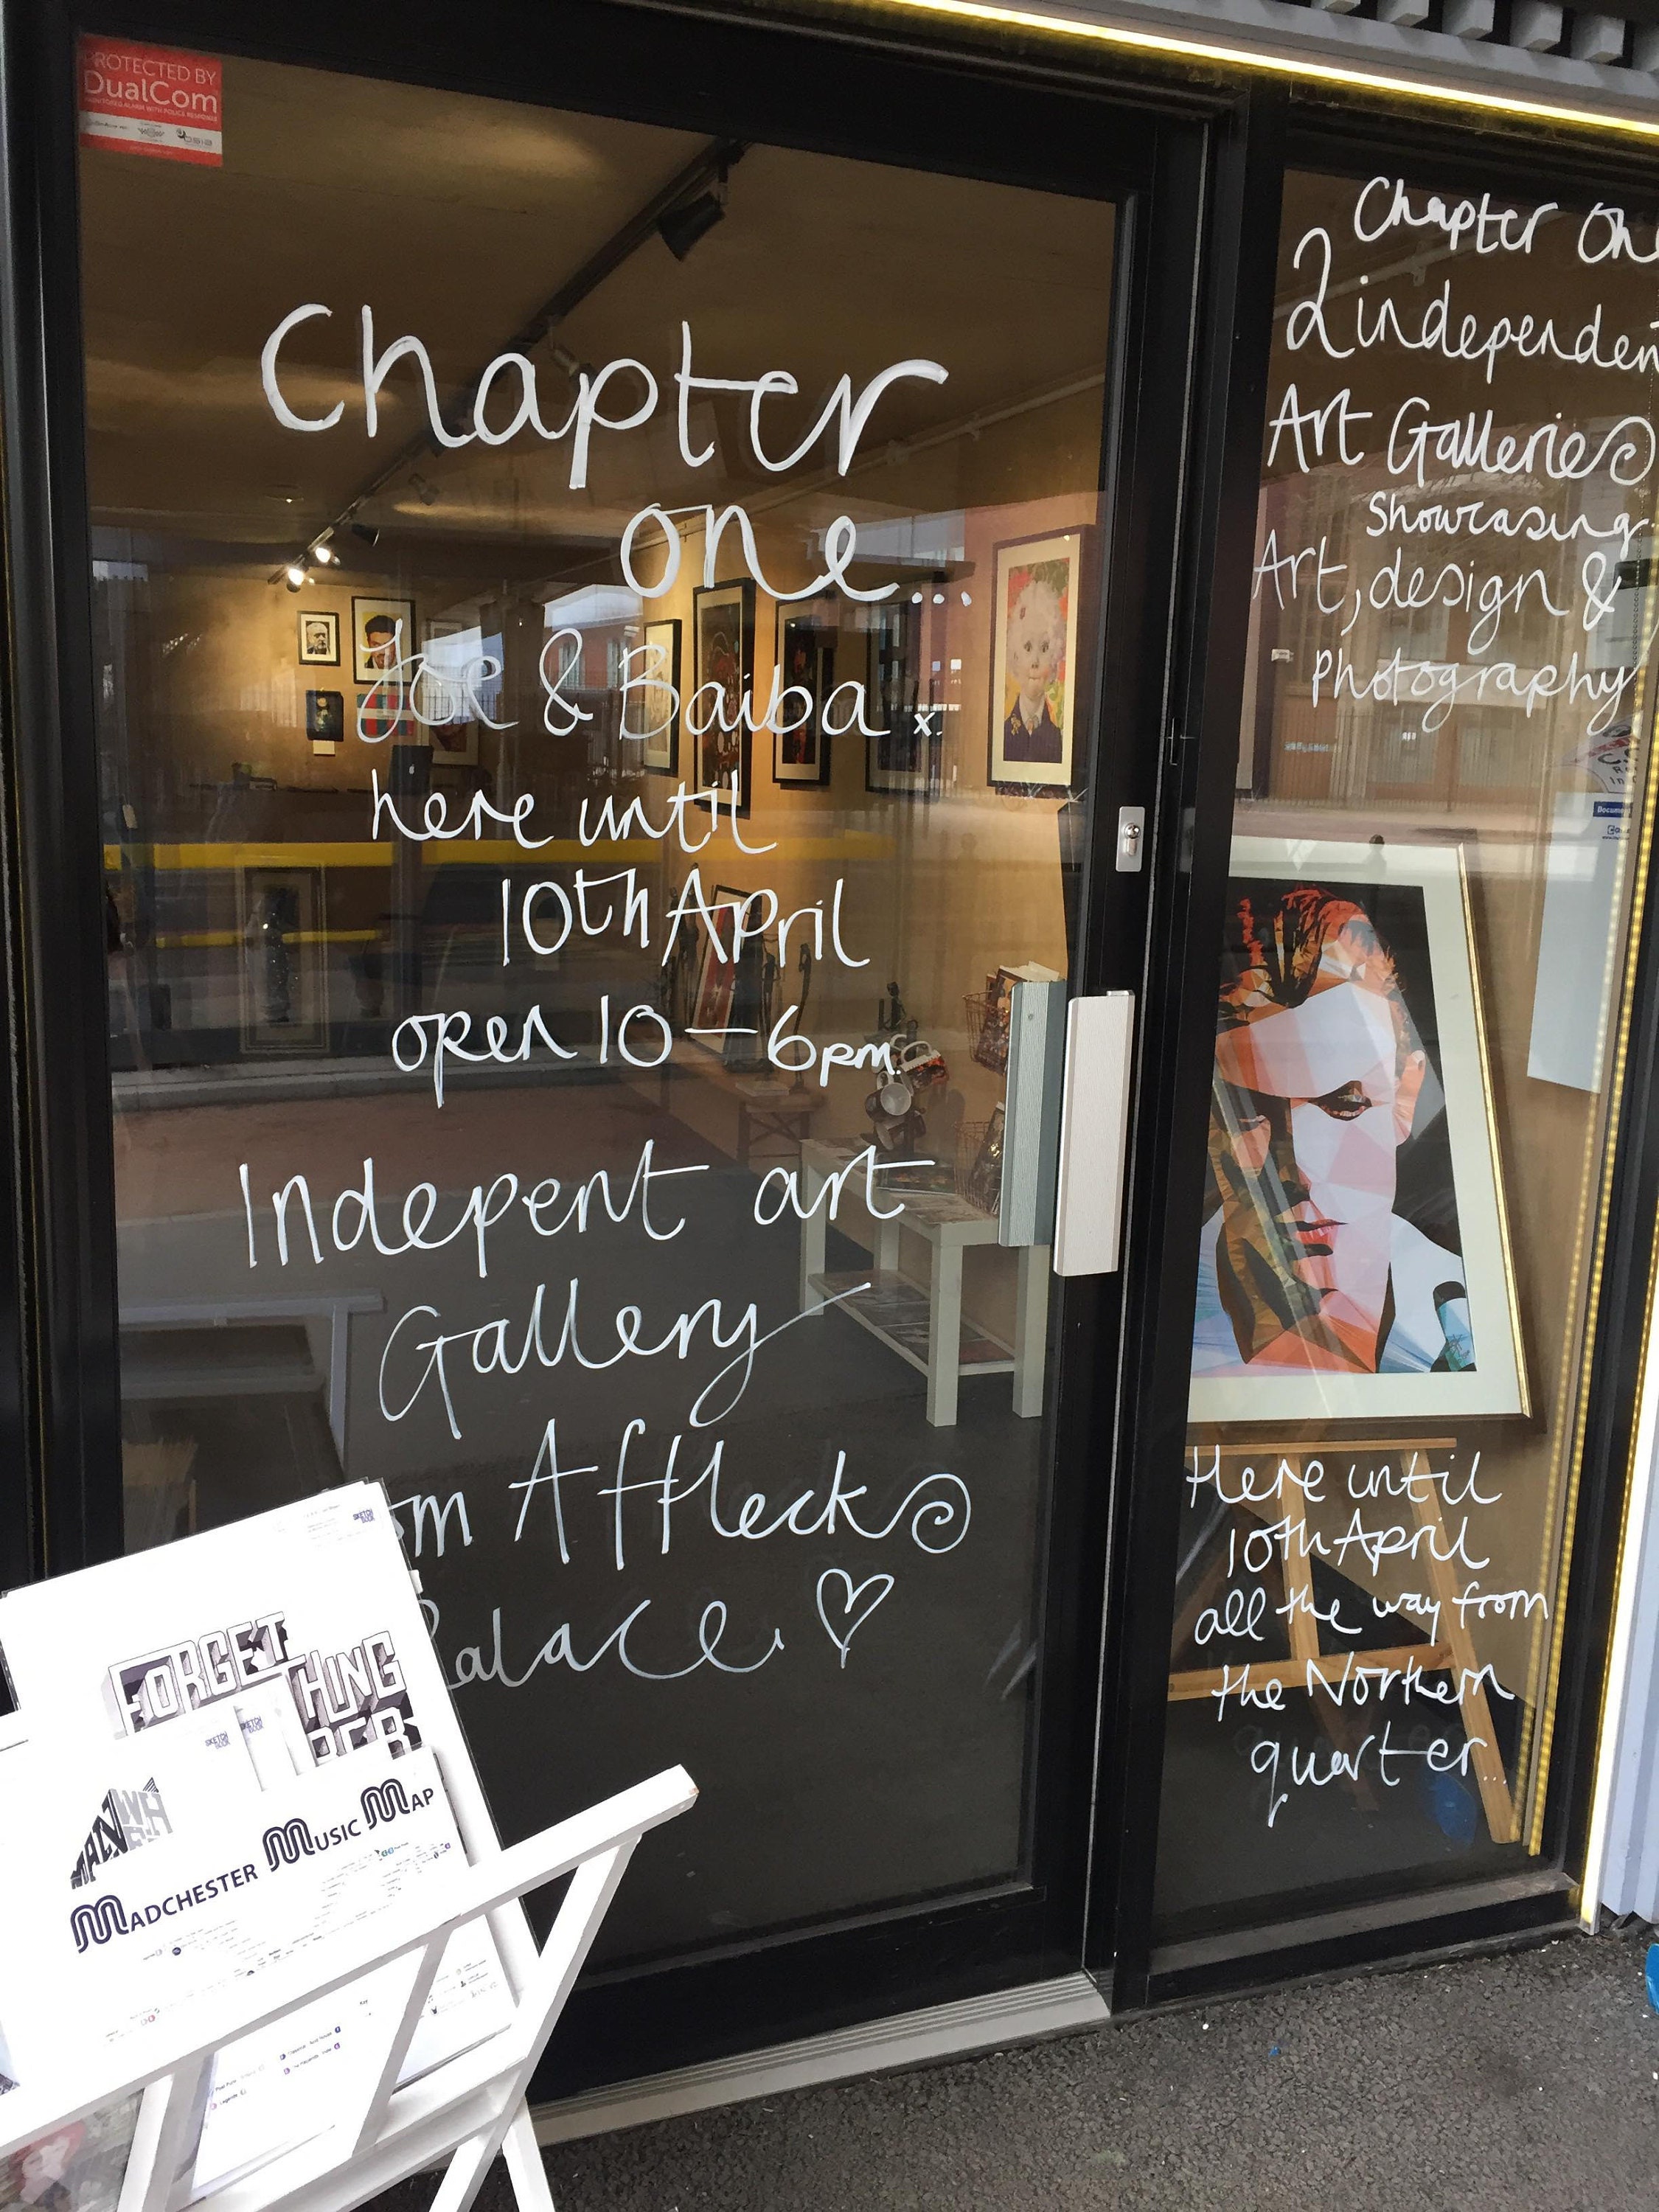 PROTECTED BY
DualCom
MONITORED ALARM WITH POLICE RESPONSE
Chapter
one...
Joe & Baiba x.
here until
10th April
open 10-6pm.
Indepent art
Gallery
om Afflecks
Palace. ♡
Chapter One
2 independen
Art Galleries
Showcasing
Art, design &
Photography
Here until
10th April
all the way from
the Northern
quarter...
FORGET
THING
MADCHESTER MUSIC MAP